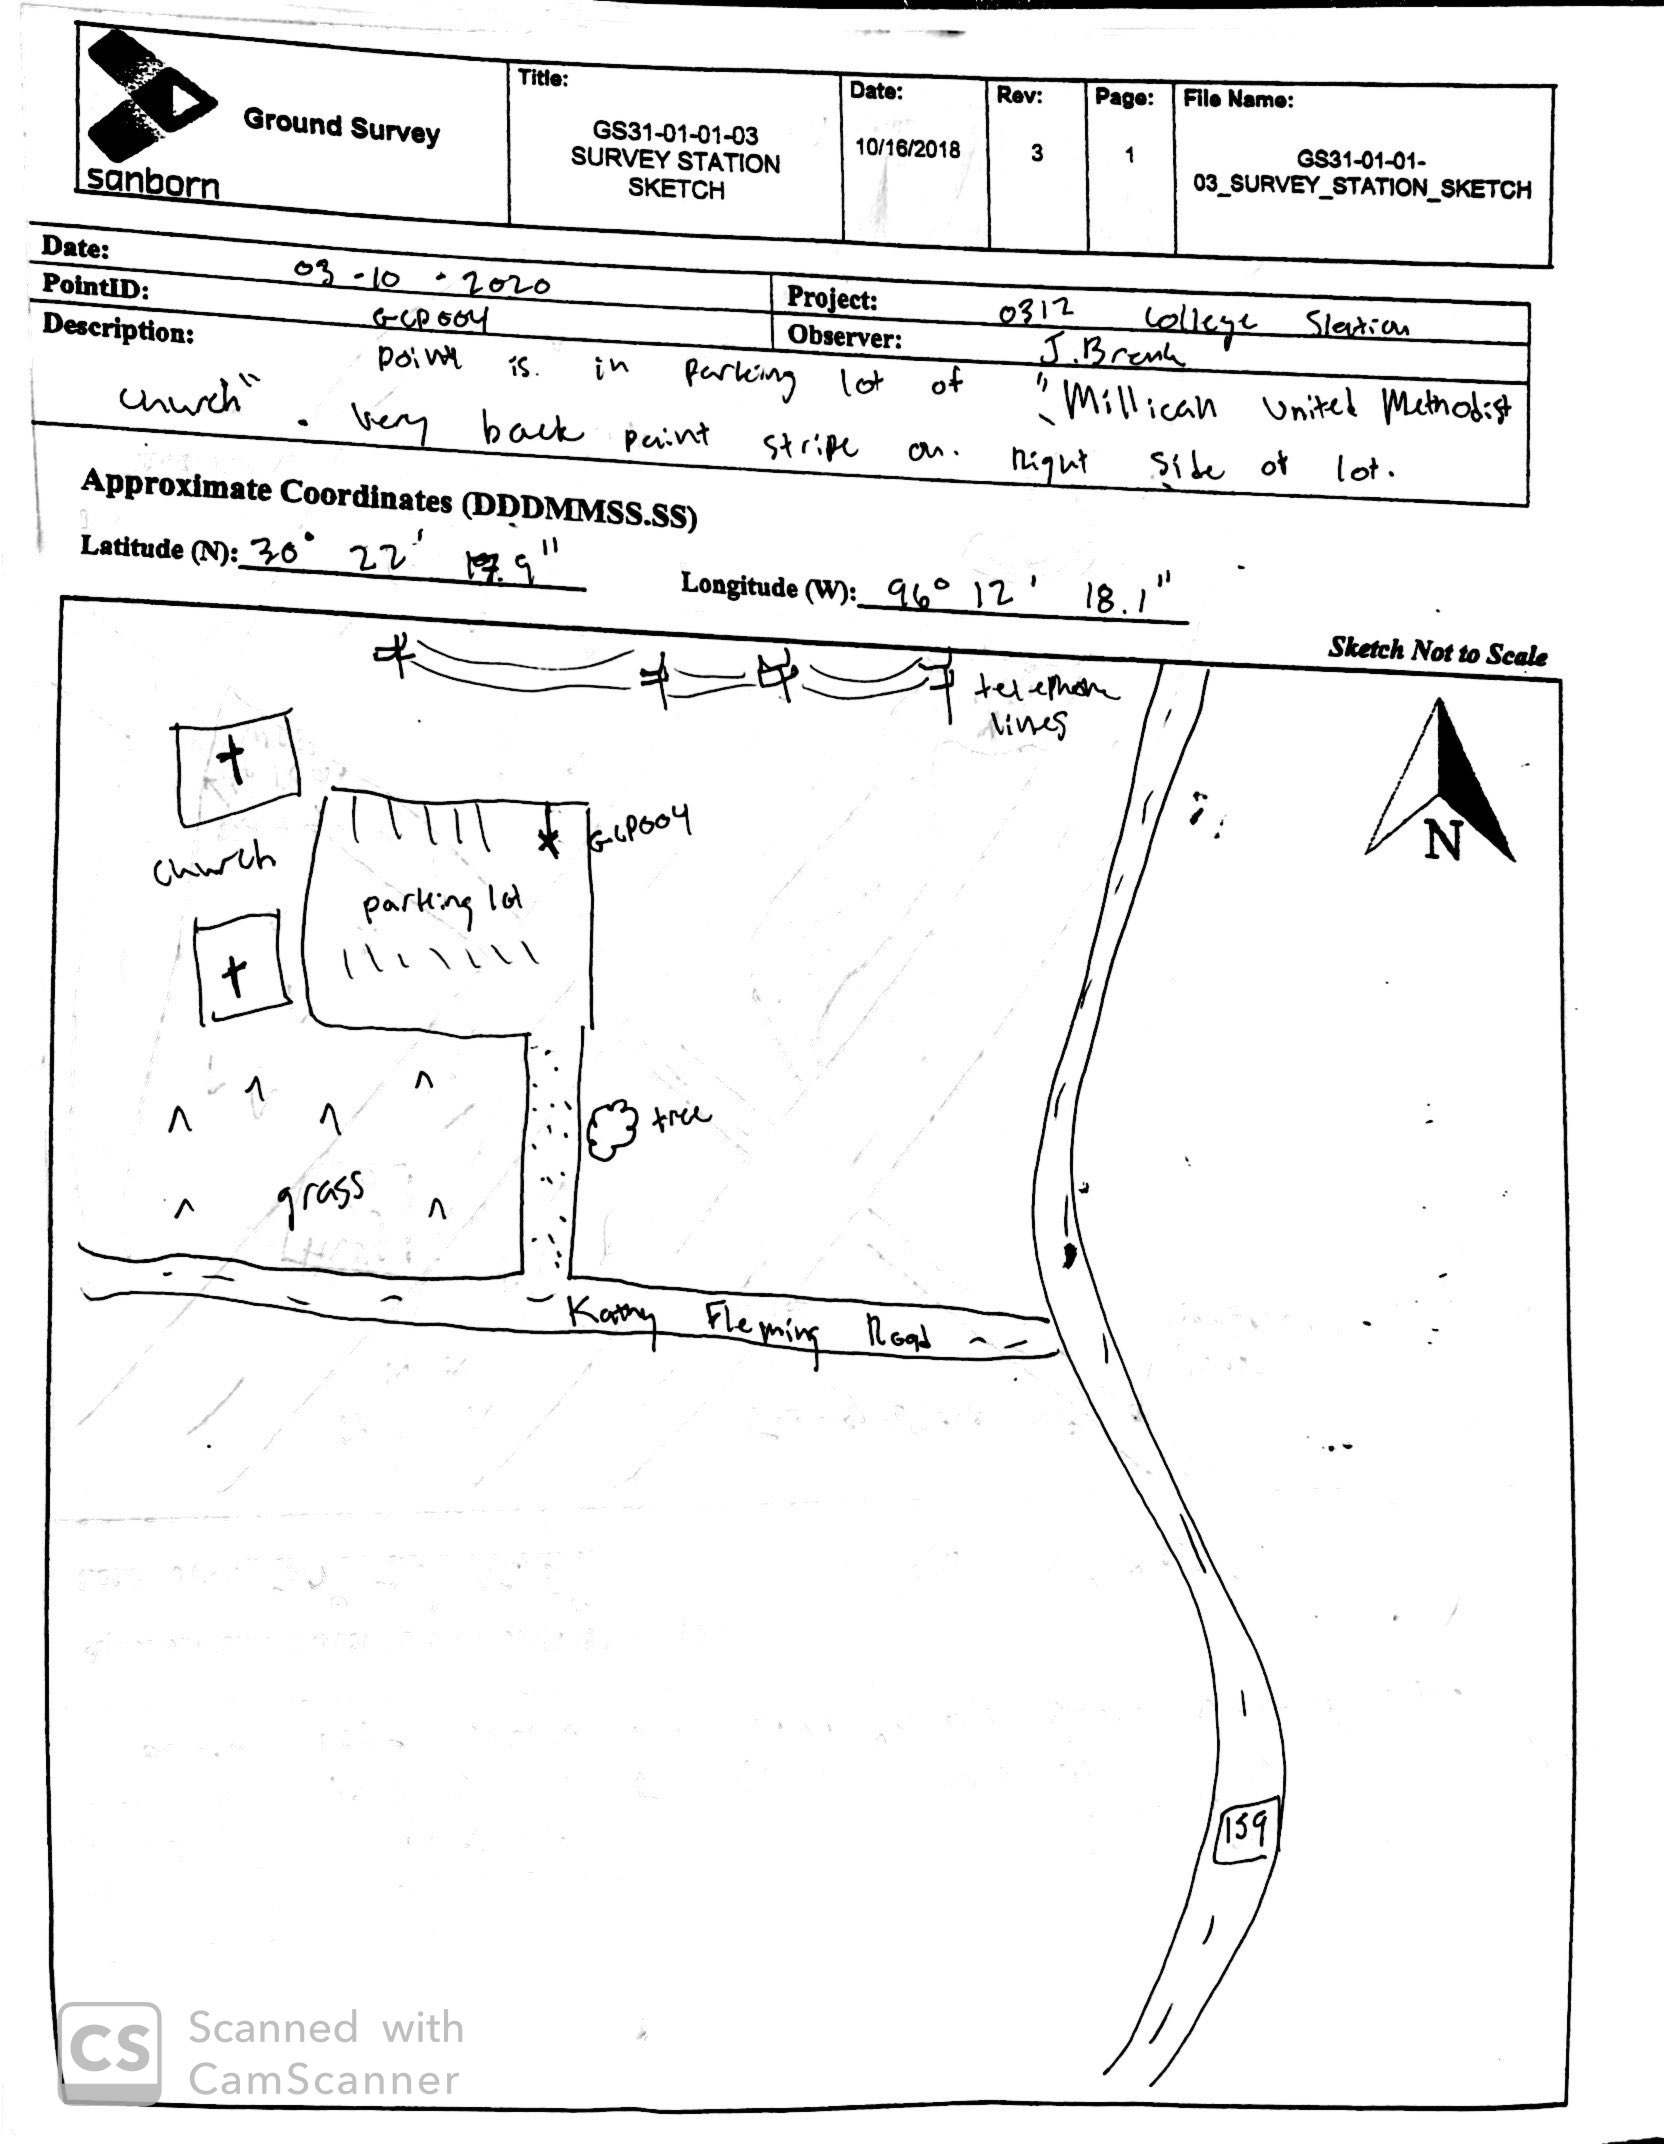 sanborn
Ground Survey
Title:
GS31-01-01-03
SURVEY STATION
SKETCH
Date:
10/16/2018
Rev:
3
Page:
1
File Name:
GS31-01-01-
03_SURVEY_STATION_SKETCH
Date: 03-10-2020
Project: 0312 College Station
PointID: GCP004
Observer: J.
Description: Point is in parking lot of "Millican United Methodist
church". Very back paint stripe on right side of lot.
Approximate Coordinates (DDDMMSS.SS)
Latitude (N): 30° 22' .9"
Longitude (W): 96° 12' 18.1"
Sketch Not to Scale
telephone
lines
N
GCP004
church
parking lot
tree
grass
Kathy Fleming Road
159
CS
Scanned with
CamScanner